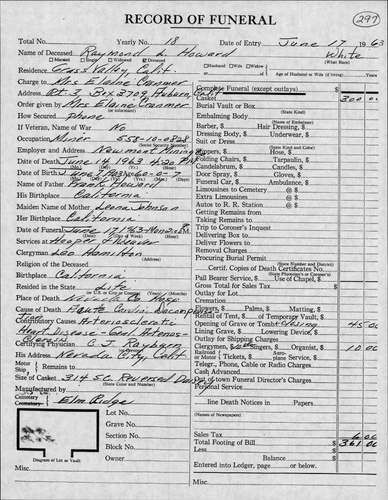 RECORD OF FUNERAL
297
Total No. Yearly No. 18 Date of Entry June 17 1963
Name of Deceased Raymond L. Howard White
(What Race)
Married Single Widowed Divorced Husband Widow of Age of Husband or Wife (if living) Years
Residence Grass Valley, Calif.
Charge to Mrs Elaine Cranmer
Address Rt. 3, Box 3709, Auburn, Calif
Order given by Mrs Elaine Cranmer
How Secured phone
If Veteran, Name of War No
Occupation Miner 558-10-0828
(Social Security Number)
Employer and Address Newmont Mining
Date of Death June 14, 1963 4:20 PM
Date of Birth June 7
Name of Father Frank Howard
His Birthplace California
Maiden Name of Mother Lenna Johnson
Her Birthplace California
Date of Funeral June 17 1963
Services at Hooper & Weaver
Clergyman Leo Hamilton
Religion of the Deceased
Birthplace California
Resided in the State Life
(In U.S. or City or County)
Place of Death Nevada Co Hosp
Cause of Death Acute Cardiac
Contributory Causes
Heart Disease
Certifying Physician C. J. Rayburn
His Address Nevada City, Calif.
Motor
Ship
Remains to
Size of Casket
(State Color and Number)
Manufactured by
Cemetery
Crematory Elm Ridge
Complete Funeral (except outlays)
Casket 300 00
Burial Vault or Box
(State Kind)
Embalming Body
Barber, Hair Dressing,
Dressing Body, Underwear,
Suit or Dress
(State Kind and Color)
Slippers, Hose,
Folding Chairs, Tarpaulin,
Candelabrum, Candles,
Door Spray, Gloves,
Funeral Car, Ambulance,
Limousines to Cemetery @
Extra Limousines @
Autos to R. R. Station @
Getting Remains
Taking Remains
Trip to Coroner's Inquest
Delivering Box to
Deliver Flowers to
Removal Charges
Procuring Burial Permit
(State Number and District)
Cert. Copies of Death Certificates No.
(State Physician's or Coroner's)
Pall Bearer Service, Use of Chapel,
Gross Total for Sales Tax
Outlay for Lot
Cremation
Flowers, Palms, Matting,
Rental of Tent, of Temporary Vault,
Opening of Grave or Tomb Closing 45 00
Lining Grave, Lowering Device,
Outlay for Shipping Charges
Clergymen, Singers, Organist, 10 00
Railroad
or Motor Tickets, Aero-plane Service,
Telegr., Phone, Cable or Radio Charges
Cash Advanced
Out of town Funeral Director's Charges
Personal Service
line Death Notices in Papers
(Names of Newspapers)
Sales Tax 6 00
Total Footing of Bill 361 00
Less
Balance
Entered into Ledger, page or below.
Misc.
Lot No.
Grave No.
Section No.
Block No.
Owner
Diagram of Lot or Vault
Misc.